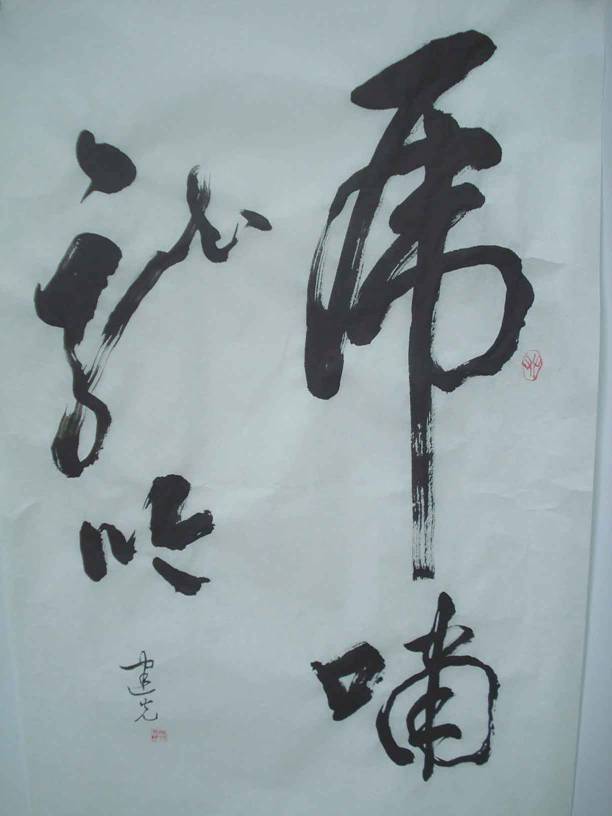 虎啸
龙吟
建光